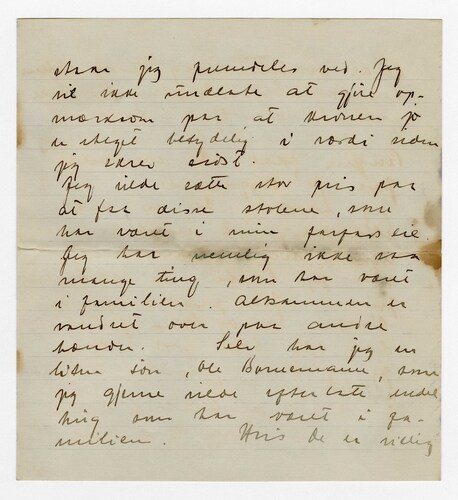 staar jeg fremdeles ved. Jeg
vil ikke undlate at gjøre op-
mærksom paa at kronen jo
er steget betydelig i værdi siden
jeg skrev sidst.
Jeg vilde sætte stor pris paa
at faa disse stolene, som
har været i min farfars eie.
Jeg har nemlig ikke saa
mange ting, som har været
i familien. Altsammen er
vandret over paa andre
hænder. Selv har jeg en
liten søn, Ole Bornemann, som
jeg gjerne vilde efterlate endel
ting som har været i fa-
milien. Hvis De er villig